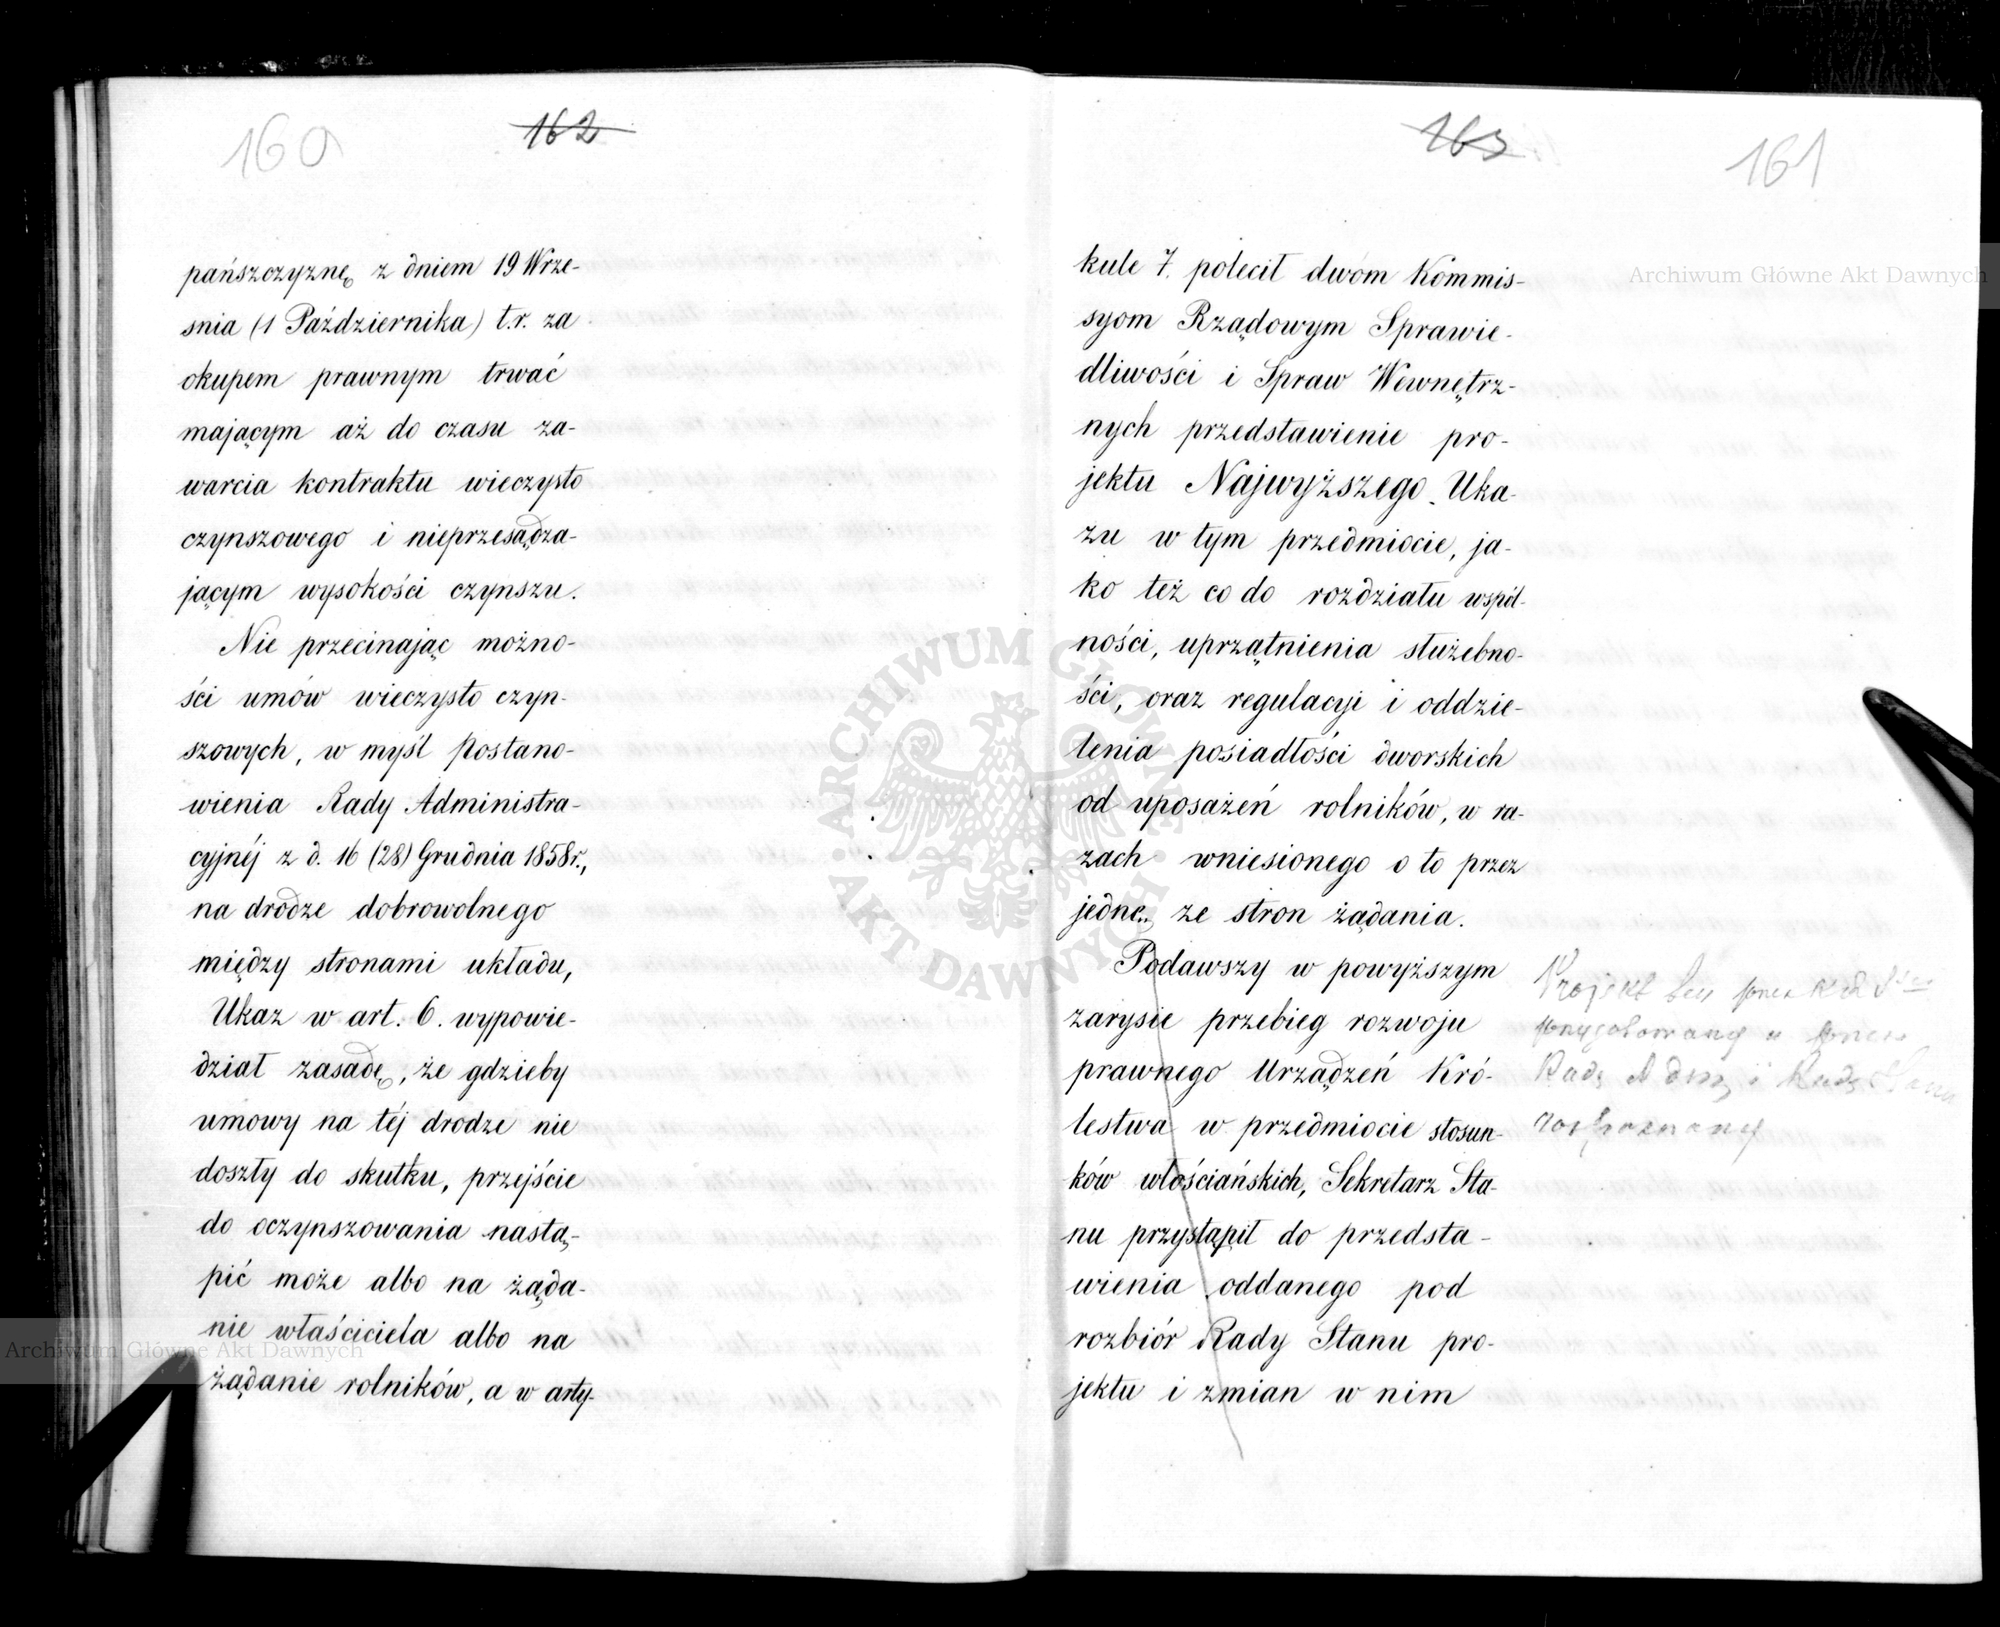 160
162
pańszczyznę z dniem 19 Wrze-
snia (1 Października) t.r. za
okupem prawnym trwać
mającym aż do czasu za-
warcia kontraktu wieczysto
czynszowego i nieprzesądza-
jącym wysokości czynszu.
Nie przecinając możno-
ści umów wieczysto czyn-
szowych, w myśl Postano-
wienia Rady Administra-
cyjnéj z d. 16 (28) Grudnia 1858 r.,
na drodze dobrowolnego
między stronami układu,
Ukaz w art. 6. wypowie-
dział zasadę, że gdzieby
umowy na téj drodze nie
doszły do skutku, przejście
do oczynszowania nastą-
pić może albo na żąda-
nie właściciela albo na
żądanie rolników, a w arty-
163
161
kule 7. polecił dwóm Kommis-
syom Rządowym Sprawie-
dliwości i Spraw Wewnętrz-
nych przedstawienie pro-
jektu Najwyższego Uka-
zu w tym przedmiocie, ja-
ko też co do rozdziału wspól-
ności, uprzątnienia służebno-
ści, oraz regulacyi i oddzie-
lenia posiadłości dworskich
od uposażeń rolników, w ra-
zach wniesionego o to przez
jednę ze stron żądania.
Podawszy w powyższym
zarysie przebieg rozwoju
prawnego Urządzeń Kró-
lestwa w przedmiocie stosun-
ków włościańskich, Sekretarz Sta-
nu przystąpił do przedsta-
wienia oddanego pod
rozbiór Rady Stanu pro-
jektu i zmian w nim
Projekt ten przez
przygotowany a przez
Radę Adm i Radę Stanu
rozpoznany
Archiwum Główne Akt Dawnych
Archiwum Główne Akt Dawnych
ARCHIWUM GŁÓWNE AKT DAWNYCH